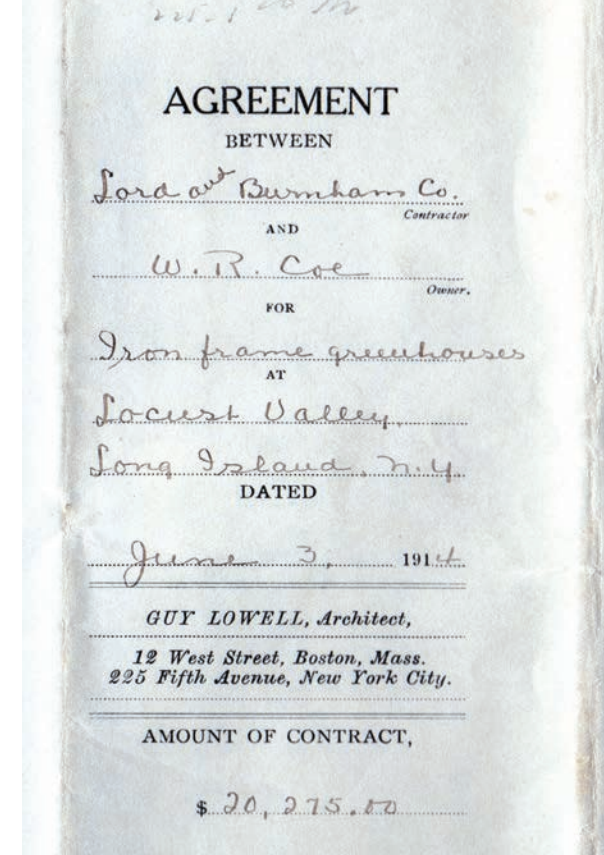 AGREEMENT
BETWEEN
Lord and Burnham Co.
Contractor
AND
W. R. Coe
Owner.
FOR
Iron frame greenhouses
AT
Locust Valley,
Long Island, N.Y.
DATED
June 3, 1914
GUY LOWELL, Architect,
12 West Street, Boston, Mass.
225 Fifth Avenue, New York City.
AMOUNT OF CONTRACT,
$ 20,275.00